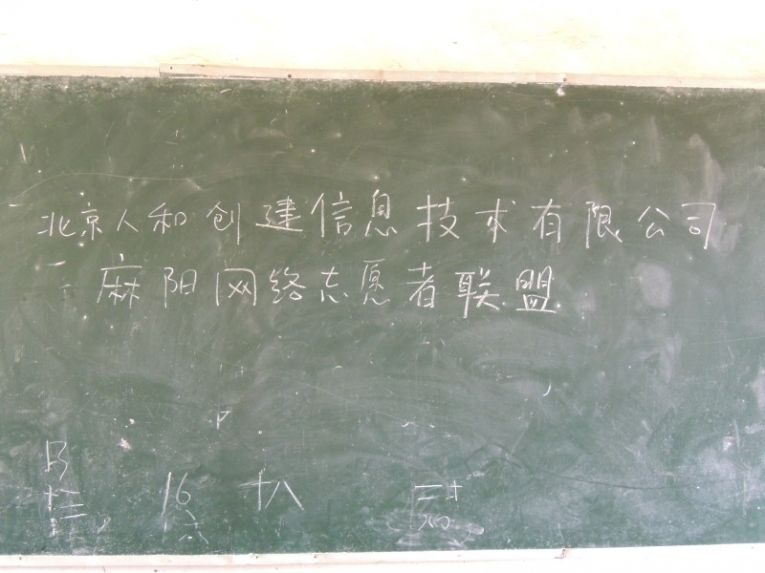 北京人和创建信息技术有限公司
麻阳网络志愿者联盟
16 十八
六